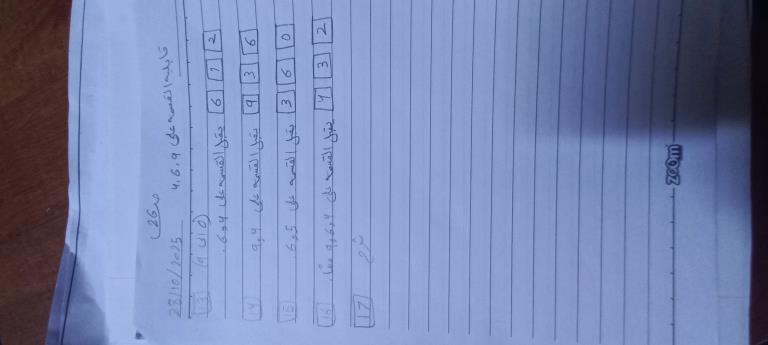 ص26)
28/10/2025 قابلية القسمة على 4,6,9
13 (9 لـ 10)
يقبل القسمة على 6,4. 6 7 2
14 يقبل القسمة على 9,4 9 3 6
15 يقبل القسمة على 6,5 3 6 0
16 يقبل القسمة على 9,6,4 معًا. 4 3 2
17
zoom